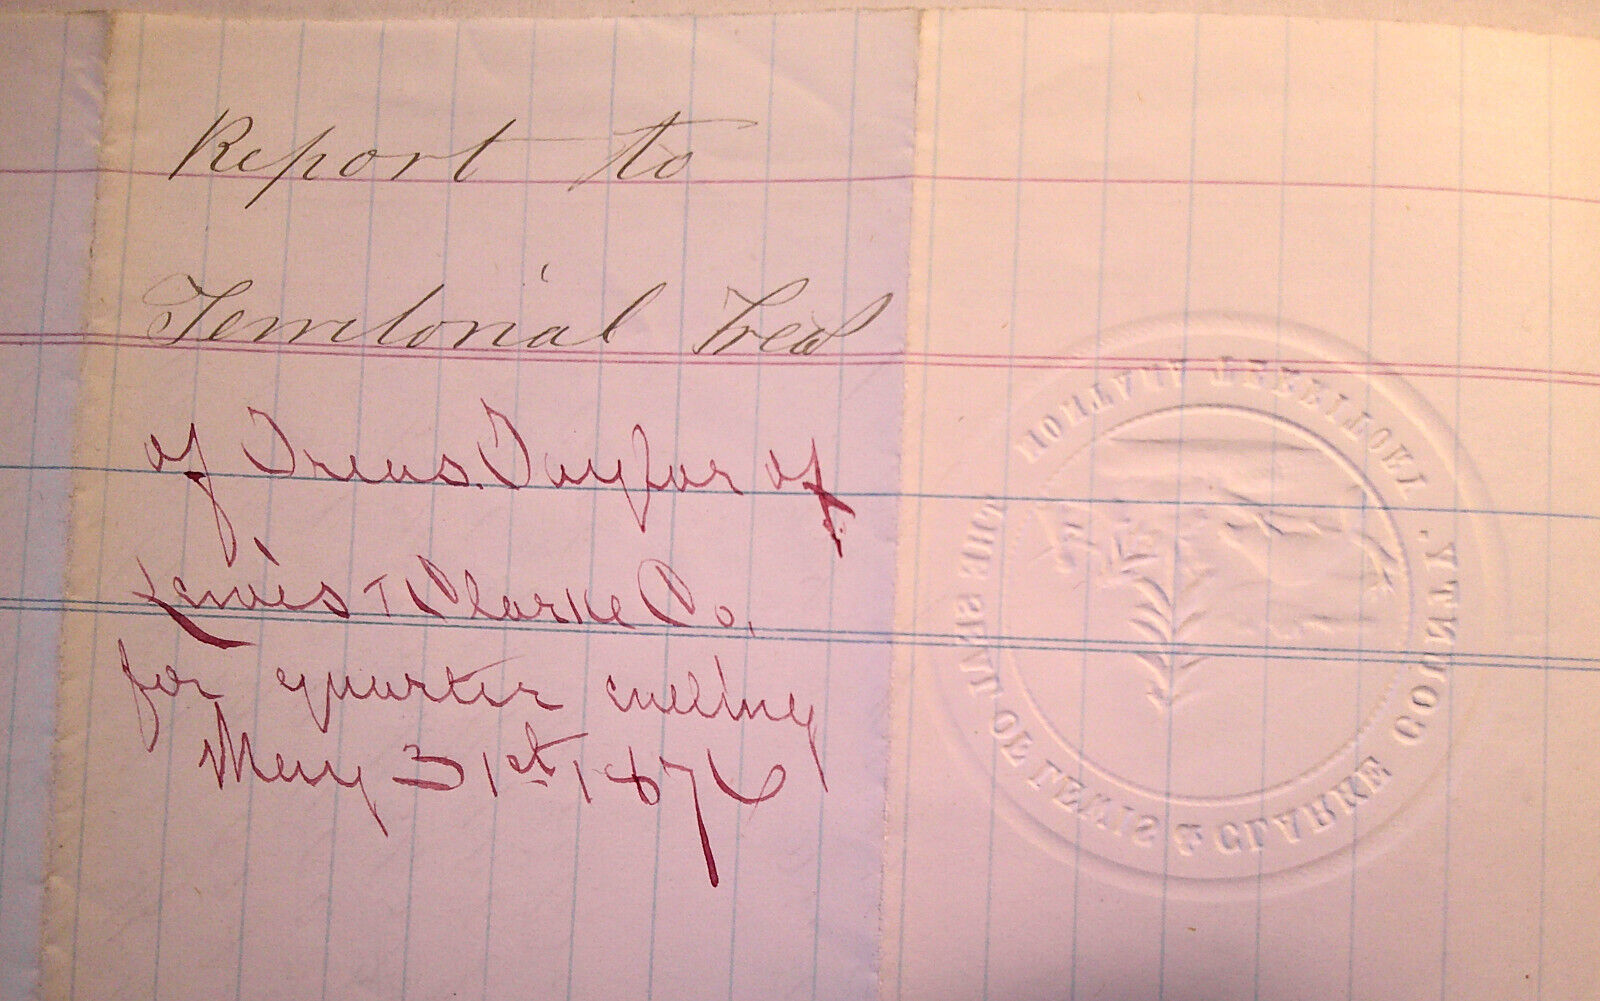 Report to
Territorial Treas
of Treas. Taylor of
Lewis & Clarke Co.
for quarter ending
May 31st 1876
THE SEAL OF LEWIS & CLARKE COUNTY.
MONTANA TERRITORY